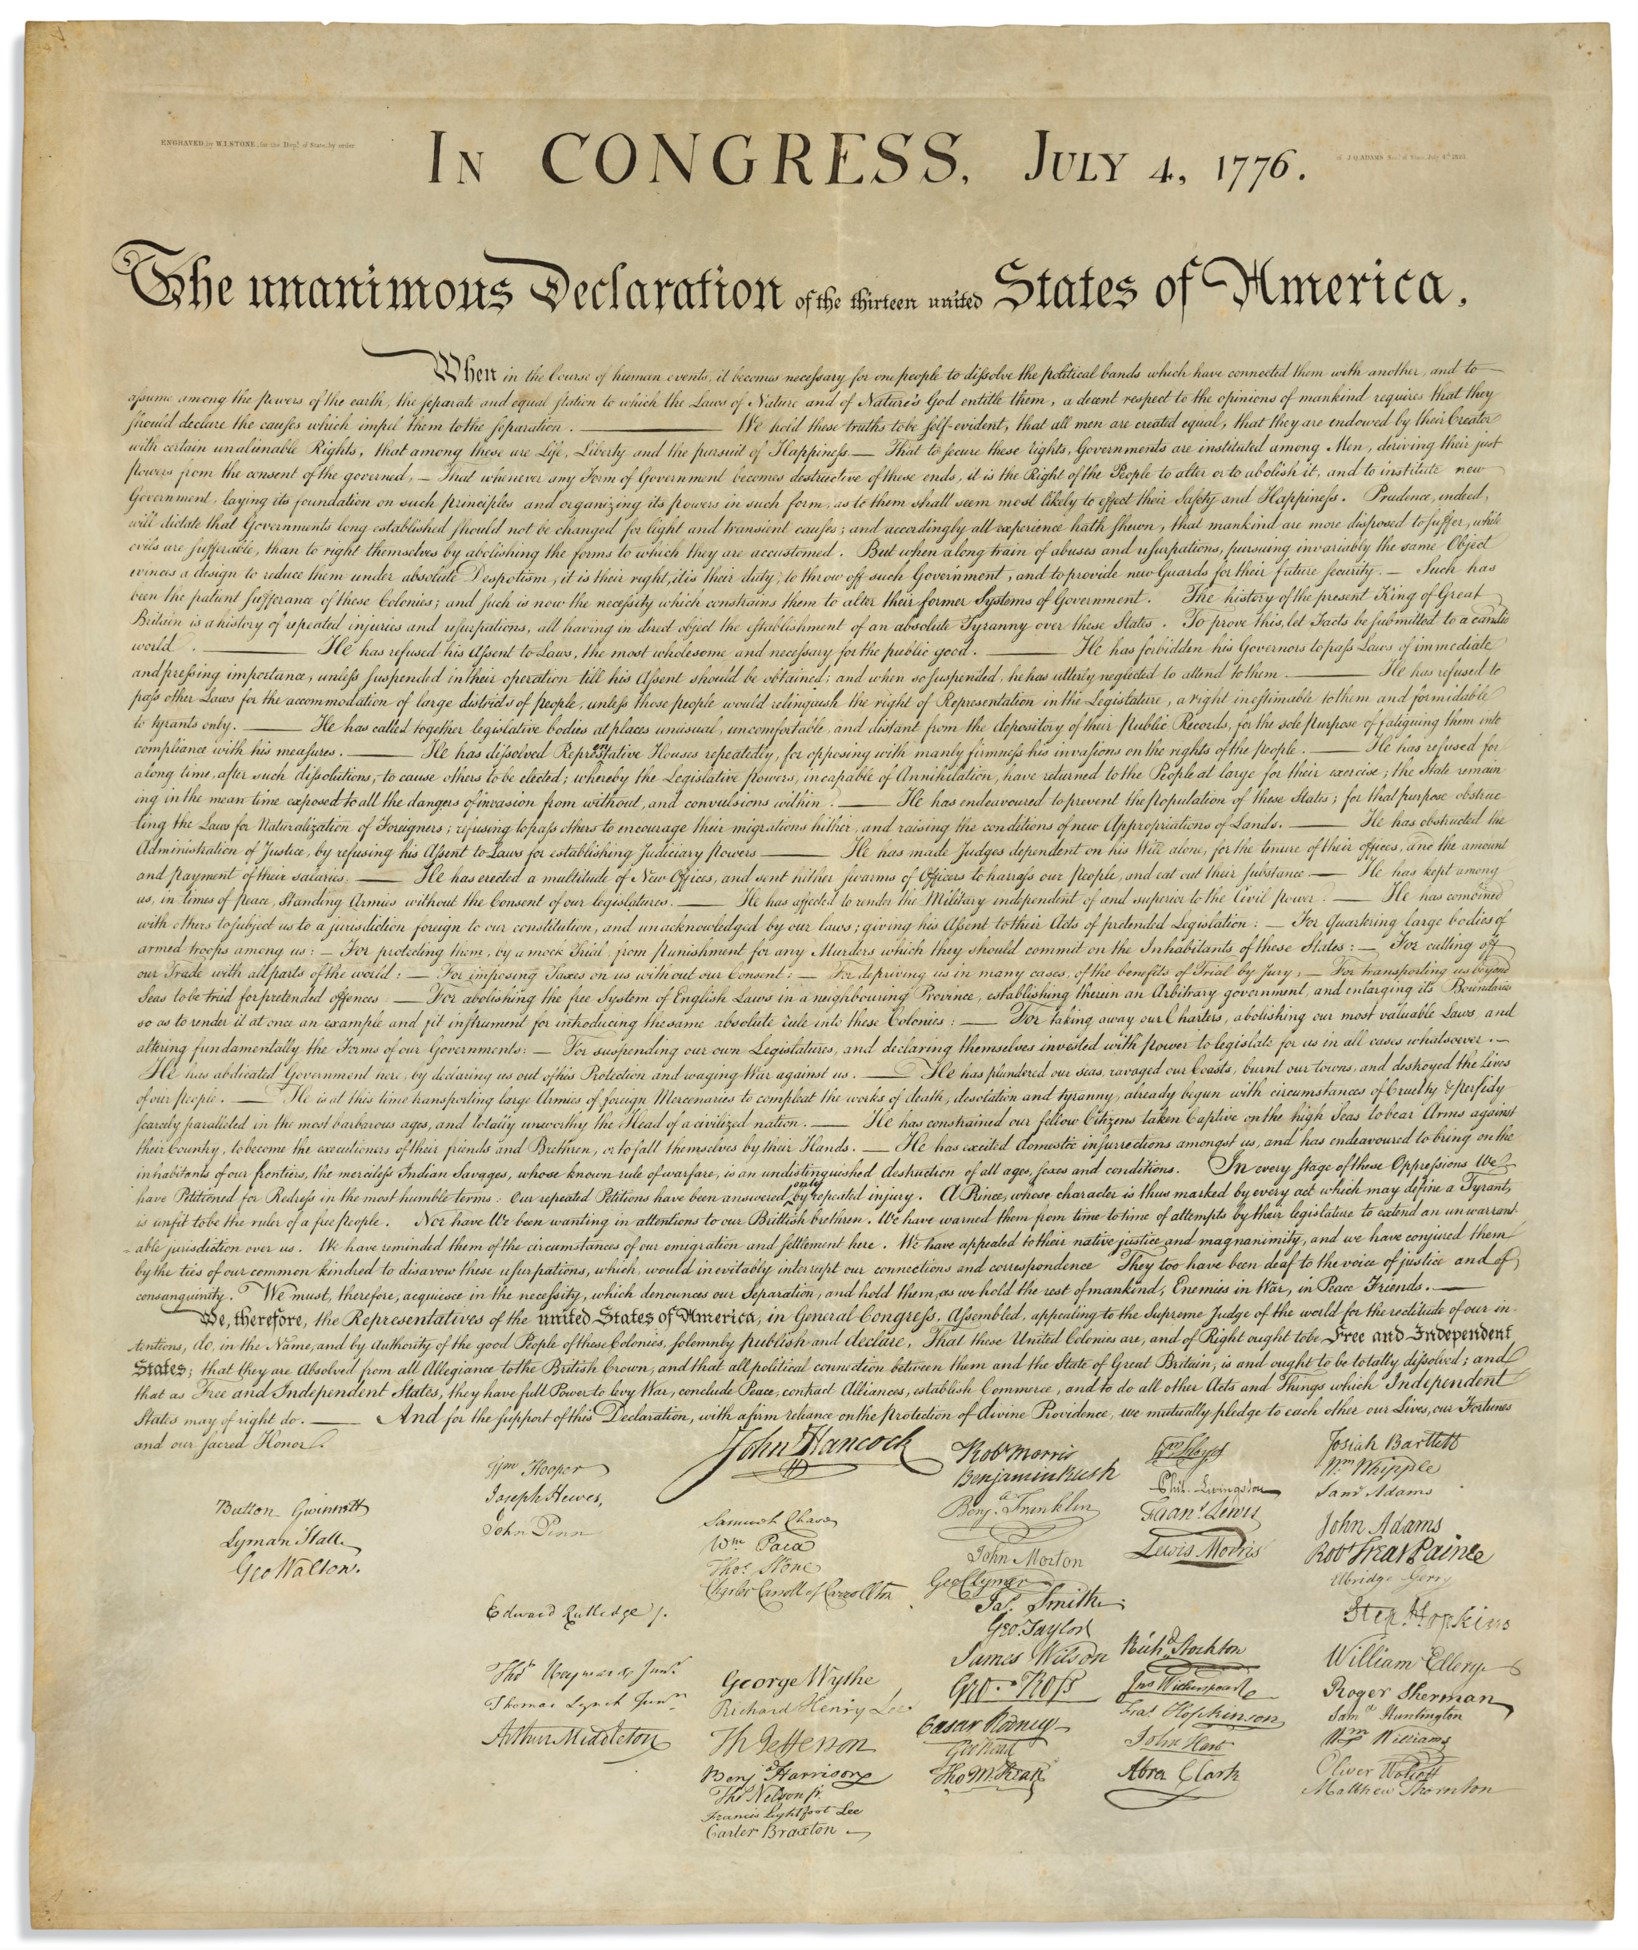 ENGRAVED by W.I.STONE, for the Dept. of State, by order
of J.Q.ADAMS Sec. of State, July 4th 1823.
IN CONGRESS, JULY 4, 1776.
The unanimous Declaration of the thirteen united States of America,
When in the Course of human events, it becomes necessary for one people to dissolve the political bands which have connected them with another, and to
assume among the powers of the earth, the separate and equal station to which the Laws of Nature and of Nature's God entitle them, a decent respect to the opinions of mankind requires that they
should declare the causes which impel them to the separation. — We hold these truths to be self-evident, that all men are created equal, that they are endowed by their Creator
with certain unalienable Rights, that among these are Life, Liberty and the pursuit of Happiness. — That to secure these rights, Governments are instituted among Men, deriving their just
powers from the consent of the governed, — That whenever any Form of Government becomes destructive of these ends, it is the Right of the People to alter or to abolish it, and to institute new
Government, laying its foundation on such principles and organizing its powers in such form, as to them shall seem most likely to effect their Safety and Happiness. Prudence, indeed,
will dictate that Governments long established should not be changed for light and transient causes; and accordingly all experience hath shewn, that mankind are more disposed to suffer, while
evils are sufferable, than to right themselves by abolishing the forms to which they are accustomed. But when a long train of abuses and usurpations, pursuing invariably the same Object
evinces a design to reduce them under absolute Despotism, it is their right, it is their duty, to throw off such Government, and to provide new Guards for their future security. — Such has
been the patient sufferance of these Colonies; and such is now the necessity which constrains them to alter their former Systems of Government. The history of the present King of Great
Britain is a history of repeated injuries and usurpations, all having in direct object the establishment of an absolute Tyranny over these States. To prove this, let Facts be submitted to a candid
world. — He has refused his Assent to Laws, the most wholesome and necessary for the public good. — He has forbidden his Governors to pass Laws of immediate
and pressing importance, unless suspended in their operation till his Assent should be obtained; and when so suspended, he has utterly neglected to attend to them. — He has refused to
pass other Laws for the accommodation of large districts of people, unless those people would relinquish the right of Representation in the Legislature, a right inestimable to them and formidable
to tyrants only. — He has called together legislative bodies at places unusual, uncomfortable, and distant from the depository of their Public Records, for the sole purpose of fatiguing them into
compliance with his measures. — He has dissolved Representative Houses repeatedly, for opposing with manly firmness his invasions on the rights of the people. — He has refused for
a long time, after such dissolutions, to cause others to be elected; whereby the Legislative powers, incapable of Annihilation, have returned to the People at large for their exercise; the State remain
ing in the mean time exposed to all the dangers of invasion from without, and convulsions within. — He has endeavoured to prevent the population of these States; for that purpose obstruc
ting the Laws for Naturalization of Foreigners; refusing to pass others to encourage their migrations hither, and raising the conditions of new Appropriations of Lands. — He has obstructed the
Administration of Justice, by refusing his Assent to Laws for establishing Judiciary powers — He has made Judges dependent on his Will alone, for the tenure of their offices, and the amount
and payment of their salaries. — He has erected a multitude of New Offices, and sent hither swarms of Officers to harrass our people, and eat out their substance — He has kept among
us, in times of peace, Standing Armies without the Consent of our legislatures. — He has affected to render the Military independent of and superior to the Civil power. — He has combined
with others to subject us to a jurisdiction foreign to our constitution, and unacknowledged by our laws; giving his Assent to their Acts of pretended Legislation: — For Quartering large bodies of
armed troops among us: — For protecting them, by a mock Trial, from punishment for any Murders which they should commit on the Inhabitants of these States: — For cutting off
our Trade with all parts of the world: — For imposing Taxes on us without our Consent: — For depriving us in many cases, of the benefits of Trial by Jury: — For transporting us beyond
Seas to be tried for pretended offences — For abolishing the free System of English Laws in a neighbouring Province, establishing therein an Arbitrary government, and enlarging its Boundaries
so as to render it at once an example and fit instrument for introducing the same absolute rule into these Colonies: — For taking away our Charters, abolishing our most valuable Laws, and
altering fundamentally the Forms of our Governments: — For suspending our own Legislatures, and declaring themselves invested with power to legislate for us in all cases whatsoever. —
He has abdicated Government here, by declaring us out of his Protection and waging War against us. — He has plundered our seas, ravaged our Coasts, burnt our towns, and destroyed the Lives
of our people. — He is at this time transporting large Armies of foreign Mercenaries to compleat the works of death, desolation and tyranny, already begun with circumstances of Cruelty & perfidy
scarcely paralleled in the most barbarous ages, and totally unworthy the Head of a civilized nation. — He has constrained our fellow Citizens taken Captive on the high Seas to bear Arms against
their Country, to become the executioners of their friends and Brethren, or to fall themselves by their Hands. — He has excited domestic insurrections amongst us, and has endeavoured to bring on the
inhabitants of our frontiers, the merciless Indian Savages, whose known rule of warfare, is an undistinguished destruction of all ages, sexes and conditions. In every stage of these Oppressions We
have Petitioned for Redress in the most humble terms: Our repeated Petitions have been answered only by repeated injury. A Prince, whose character is thus marked by every act which may define a Tyrant,
is unfit to be the ruler of a free people. Nor have We been wanting in attentions to our Brittish brethren. We have warned them from time to time of attempts by their legislature to extend an unwarrant
able jurisdiction over us. We have reminded them of the circumstances of our emigration and settlement here. We have appealed to their native justice and magnanimity, and we have conjured them
by the ties of our common kindred to disavow these usurpations, which, would inevitably interrupt our connections and correspondence They too have been deaf to the voice of justice and of
consanguinity. We must, therefore, acquiesce in the necessity, which denounces our Separation, and hold them, as we hold the rest of mankind, Enemies in War, in Peace Friends. —
We, therefore, the Representatives of the united States of America, in General Congress, Assembled, appealing to the Supreme Judge of the world for the rectitude of our in
tentions, do, in the Name, and by Authority of the good People of these Colonies, solemnly publish and declare, That these United Colonies are, and of Right ought to be Free and Independent
States; that they are Absolved from all Allegiance to the British Crown, and that all political connection between them and the State of Great Britain, is and ought to be totally dissolved; and
that as Free and Independent States, they have full Power to levy War, conclude Peace, contract Alliances, establish Commerce, and to do all other Acts and Things which Independent
States may of right do. — And for the support of this Declaration, with a firm reliance on the protection of divine Providence, we mutually pledge to each other our Lives, our Fortunes
and our sacred Honor.
Button Gwinnett
Lyman Hall
Geo Walton.
Wm Hooper
Joseph Hewes,
John Penn
Edward Rutledge /.
Thos Heyward Junr.
Thomas Lynch Junr.
Arthur Middleton
John Hancock
Samuel Chase
Wm Paca
Thos. Stone
Charles Carroll of Carrollton
George Wythe
Richard Henry Lee
Th Jefferson
Benj Harrison
Thos Nelson jr.
Francis Lightfoot Lee
Carter Braxton
Robt Morris
Benjamin Rush
Benja. Franklin
John Morton
Geo Clymer
Jas. Smith
Geo. Taylor
James Wilson
Geo. Ross
Caesar Rodney
Geo Read
Tho M:Kean
Wm Floyd
Phil. Livingston
Frans. Lewis
Lewis Morris
Richd. Stockton
Jno Witherspoon
Fras. Hopkinson
John Hart
Abra Clark
Josiah Bartlett
Wm Whipple
Saml Adams
John Adams
Robt Treat Paine
Elbridge Gerry
Step. Hopkins
William Ellery
Roger Sherman
Saml Huntington
Wm Williams
Oliver Wolcott
Matthew Thornton